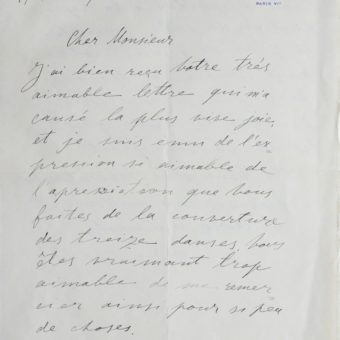 PARIS VIIe
Cher Monsieur
J'ai bien reçu votre très
aimable lettre qui m'a
causé la plus vive joie,
et je suis emu de l'ex-
pression si aimable de
l'apresiation que vous
faites de la couverture
des treize danses. Vous
êtes vraimant trop
aimable de me remer-
cier ainsi pour si peu
de choses.